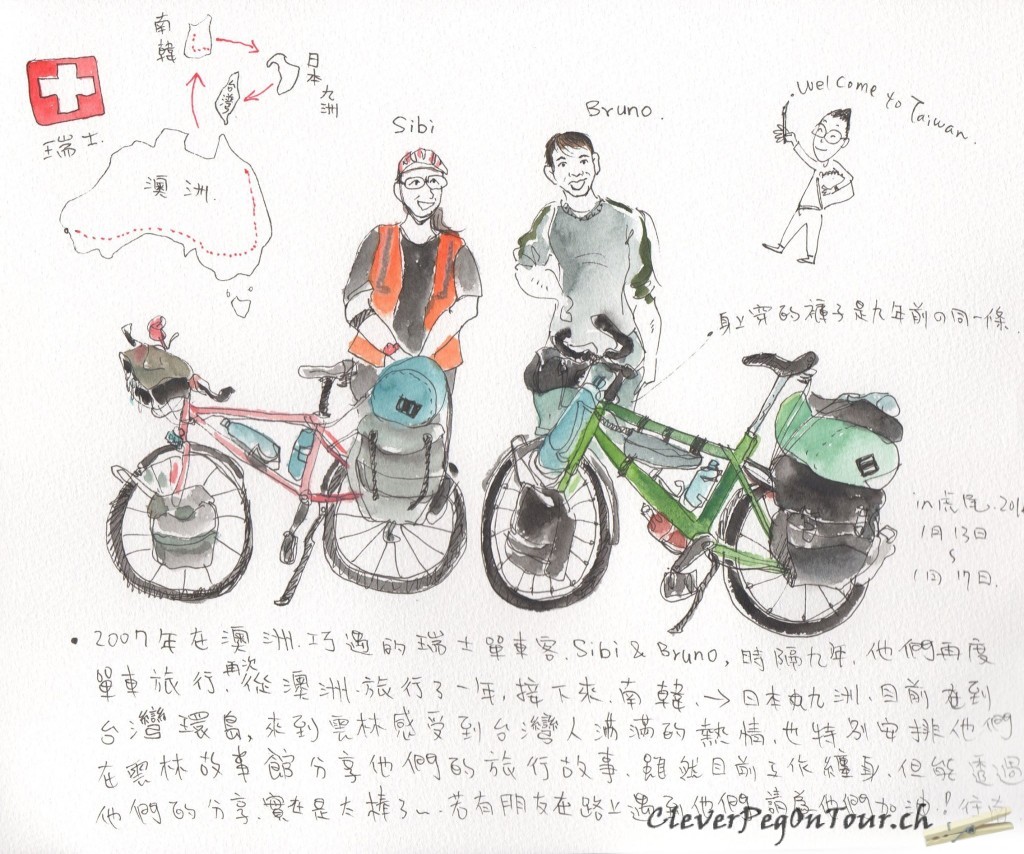 南韓
日本九洲
台灣
瑞士.
澳洲.
Sibi
Bruno.
Welcome to Taiwan.
身上穿的褲子是九年前の同一條
in 虎尾.
1月13日
~
1月17日.
• 2007年在澳洲.巧遇的瑞士單車客.Sibi & Bruno, 時隔九年,他們再度
單車旅行.再次從澳洲.旅行了一年,接下來.南韓.→日本九洲.目前在到
台灣環島,來到雲林感受到台灣人滿滿的熱情.也特別安排他們
在雲林故事館分享他們的旅行故事.雖然目前工作纏身.但能透過
他們的分享.實在是太棒了~.若有朋友在路上遇到他們.請為他們加油!
CleverPegOnTour.ch